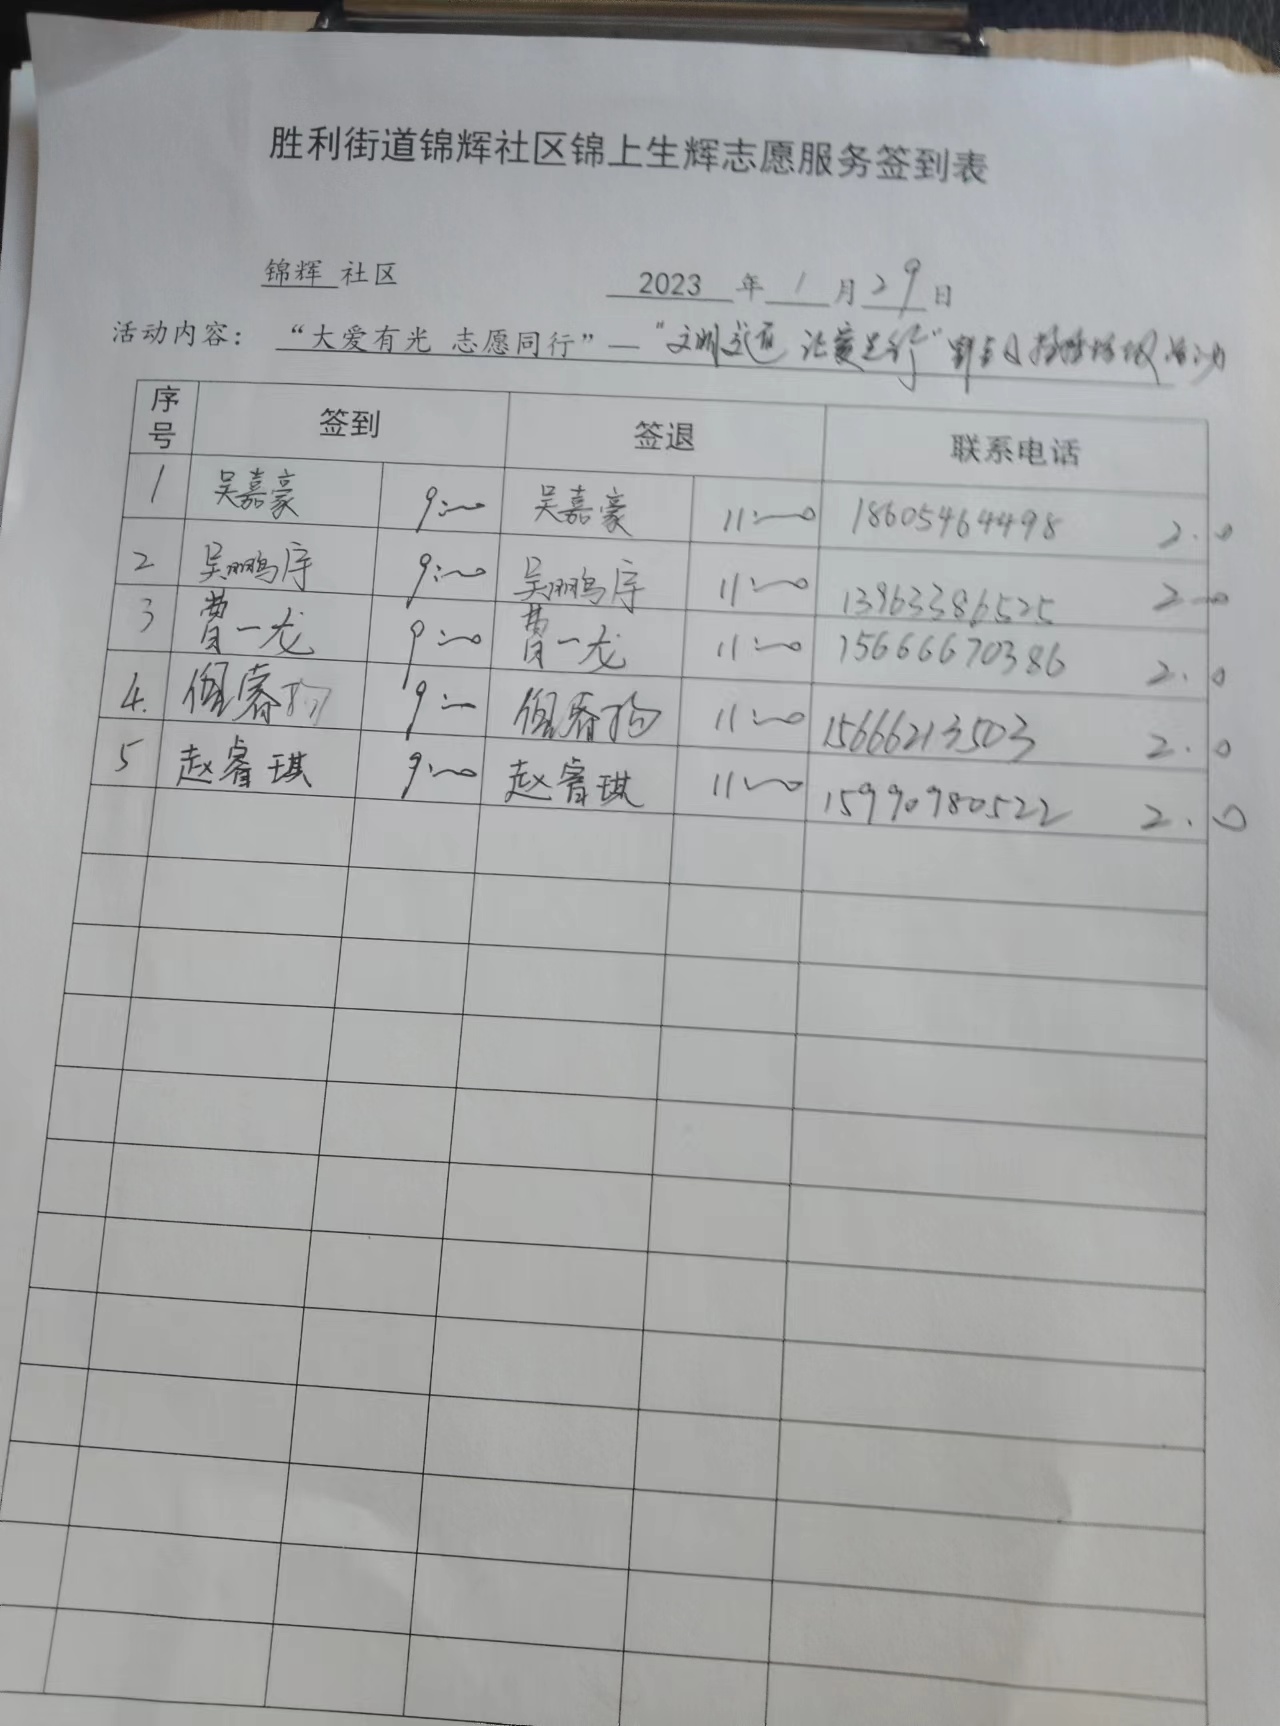 胜利街道锦辉社区锦上生辉志愿服务签到表
锦辉 社区 2023 年 1 月 29 日
活动内容: “大爱有光 志愿同行”—“文明交通 让爱先行” 活动
序号 签到 签退 联系电话
1 吴嘉豪 9:00 吴嘉豪 11:00 18605464498 2.0
2 吴鹏宇 9:00 吴鹏宇 11:00 13963386525 2.0
3 曹一龙 9:00 曹一龙 11:00 15666670386 2.0
4. 9:00 11:00 15666213503 2.0
5 赵睿琪 9:00 赵睿琪 11:00 15990980522 2.0